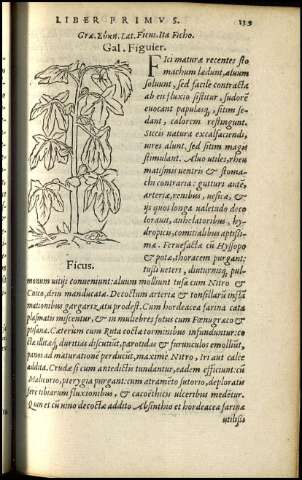 LIBER PRIMVS. 139
Græ. Σύκη. Lat. Ficus. Ita Ficho.
Gal. Figuier.
Fici maturæ recentes sto
machum lædunt, aluum
soluunt, sed facile contracta
ab eis fluxio sistitur, sudorē
euocant papulasq́, sitim se-
dant, calorem restingunt.
Siccis natura excalfaciendi,
vires alunt, sed sitim magis
stimulant. Aluo vtiles, rheu
matismis ventris & stoma-
chi contraria: gutturi autē,
arteriæ, renibus, vesicæ, &
ijs quos longa valetudo deco
lorauit, anhelatoribus, hy-
dropicis, comitialibus aptis-
simæ. Feruefactæ cū Hyssopo
& potæ, thoracem purgant:
tussi veteri, diutinisq́; pul-
Ficus.
monum vitijs conueniunt: aluum molliunt tusæ cum Nitro &
Cnico, deìn manducatæ. Decoctum arteriæ & tonsillarū infla
mationibus gargarizatu prodest. Cum hordeacea farina cata
plasmatis miscentur, & in muliebres fotus cum Fœnugræco &
ptisana. Cæterum cum Ruta coctæ torminibus infunduntur: co
ctæ illitæq́;, duritias discutiūt, parotidas & furunculos emolliūt,
panos ad maturationē perducūt, maximè Nitro, Iri aut calce
addita. Crudæ si cum antedictis tundantur, eadem efficiunt: cū
Malicorio, pterygia purgant: cum atramēto sutorio, deploratis
ferè tibiarum fluxionibus, & cacoëthicis vlceribus medētur.
Quin et cū vino decoctæ addito Absinthio et hordeacea farina
vtilissi